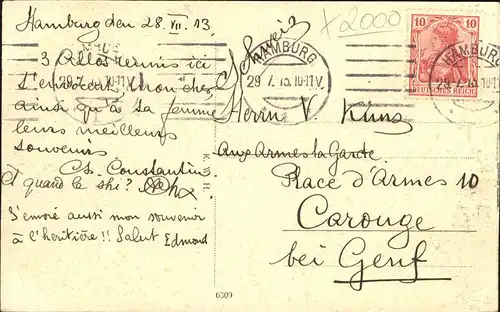 Hamburg den 28. VII. 13.
3 Allobrennis ici
t'envoient, mon cher
ainsi qu'à ta femme
leurs meilleurs
souvenirs
Ch. Constantin
à quand le ski?
J'envoie aussi mon souvenir
à l'heritière!! Salut Edmond
Schweiz
x 2000
HAMBURG
29.7.13.10-11V.
10 10
DEUTSCHES REICH
HAMBURG
Herrn V. Kunz
Aux Armes la Garde
Place d'Armes 10
Carouge
bei Genf
6009